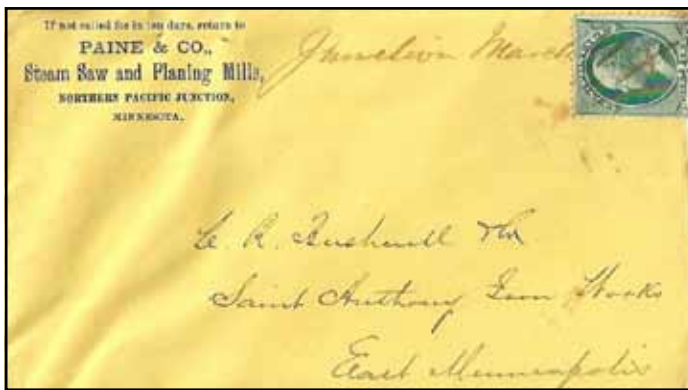 If not called for in ten days, return to
PAINE & CO.,
Steam Saw and Planing Mills,
NORTHERN PACIFIC JUNCTION,
MINNESOTA.
Junction March
R. Bushnell
Saint Anthony Iron Works
East Minneapolis